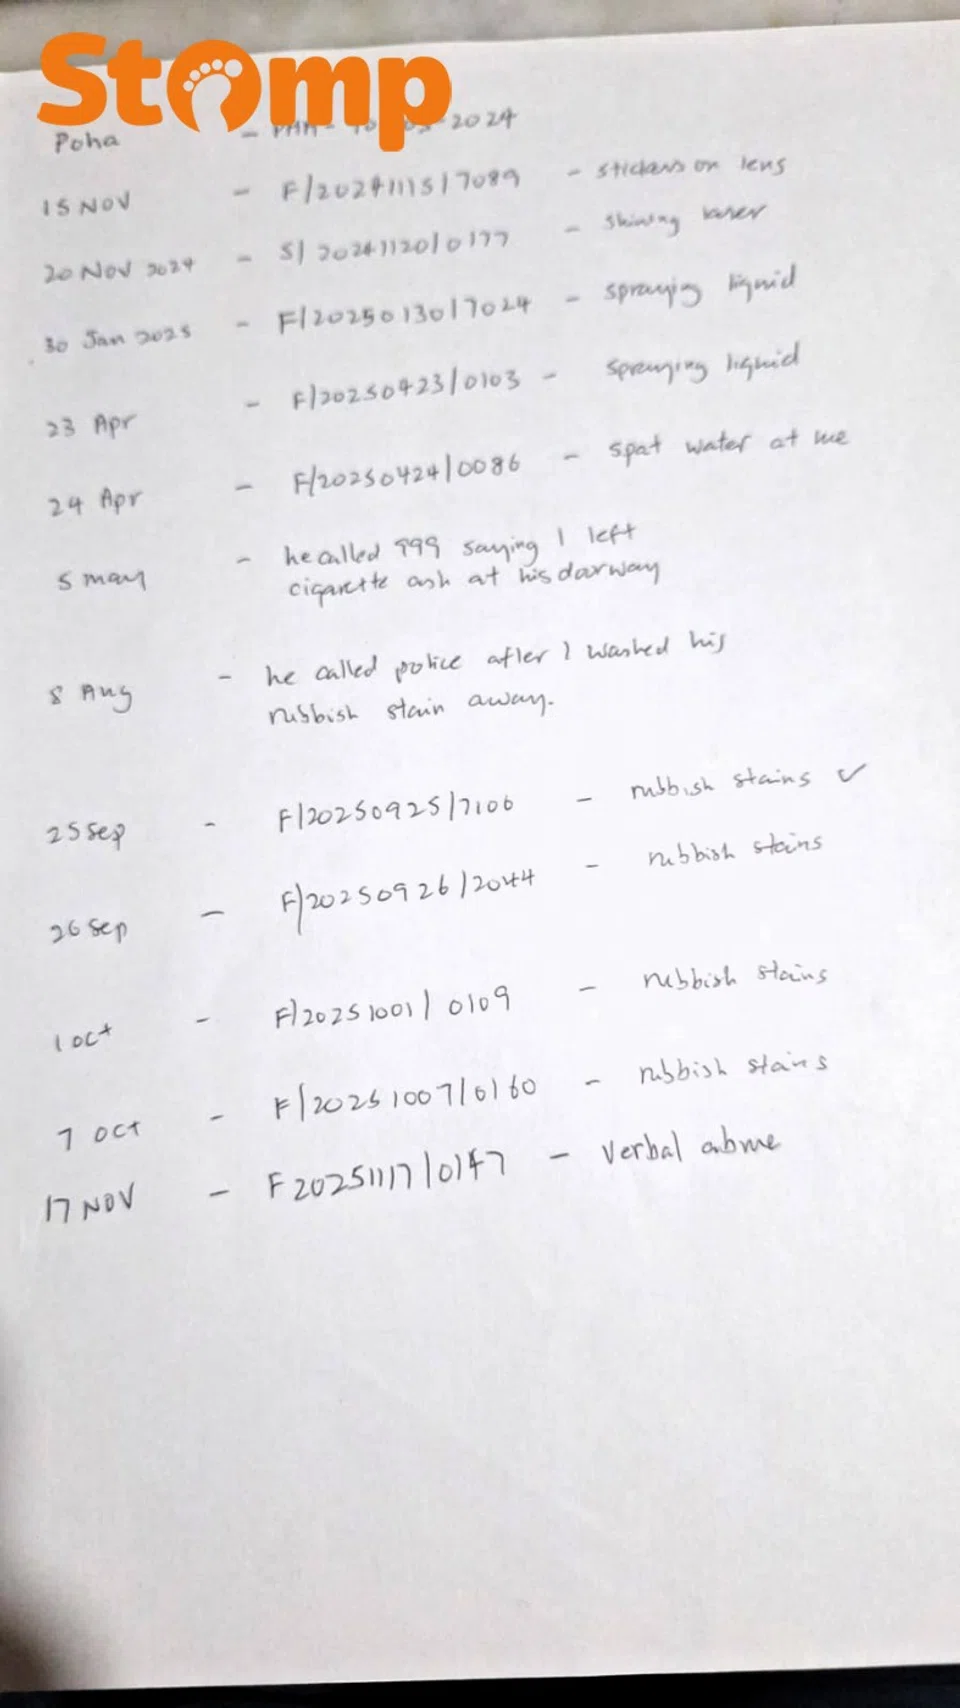 Stomp
Poha - 2024
15 NOV - F/20241115/7089 - stickers on lens
20 NOV 2024 - S/20241120/0177 - shining laser
30 Jan 2025 - F/20250130/7024 - spraying liquid
23 Apr - F/20250423/0103 - spraying liquid
24 Apr - F/20250424/0086 - spat water at me
5 may - he called 999 saying I left
cigarette ash at his doorway
8 Aug - he called police after I washed his
rubbish stain away.
25 Sep - F/20250925/7106 - rubbish stains ✓
26 Sep - F/20250926/2044 - rubbish stains
1 Oct - F/20251001/0109 - rubbish stains
7 Oct - F/20251007/0160 - rubbish stains
17 NOV - F20251117/0147 - Verbal abuse